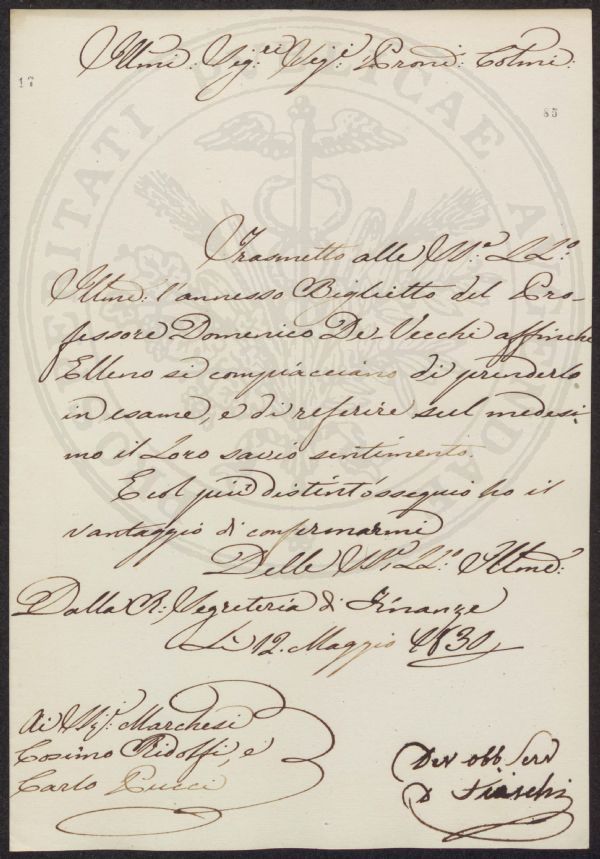 Illmi: Sigri: Sigi: Proni: Colmi:
17
85
PROSPERITATI PUBLICAE AUGENDAE
Trasmetto alle SS.e LL.o
Illme: l'annesso Biglietto del Pro-
fessore Domenico De-Vecchi affinche
Elleno si compiacciano di prenderlo
in esame, e di referire sul medesi-
mo il Loro savio sentimento.
E col più distinto ossequio ho il
vantaggio di confermarmi
Delle SS.e LL.o Illme:
Dalla R: Segreteria di Finanze
Li 12. Maggio 1830,
Ai SSi: Marchesi
Cosimo Ridolfi, e
Carlo Pucci
Dev obb Serv
D Fiaschi